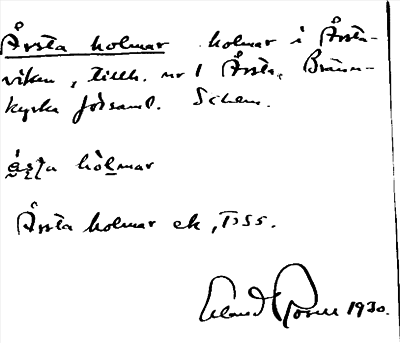 Årsta holmar holmar i Årsta-
viken, tillh. nr 1 Årsta, Bränn-
kyrka församl. Sthlm.
ås̩ta hòlmar
Årsta holmar ek, TSS.
Erland Rosell 1930.